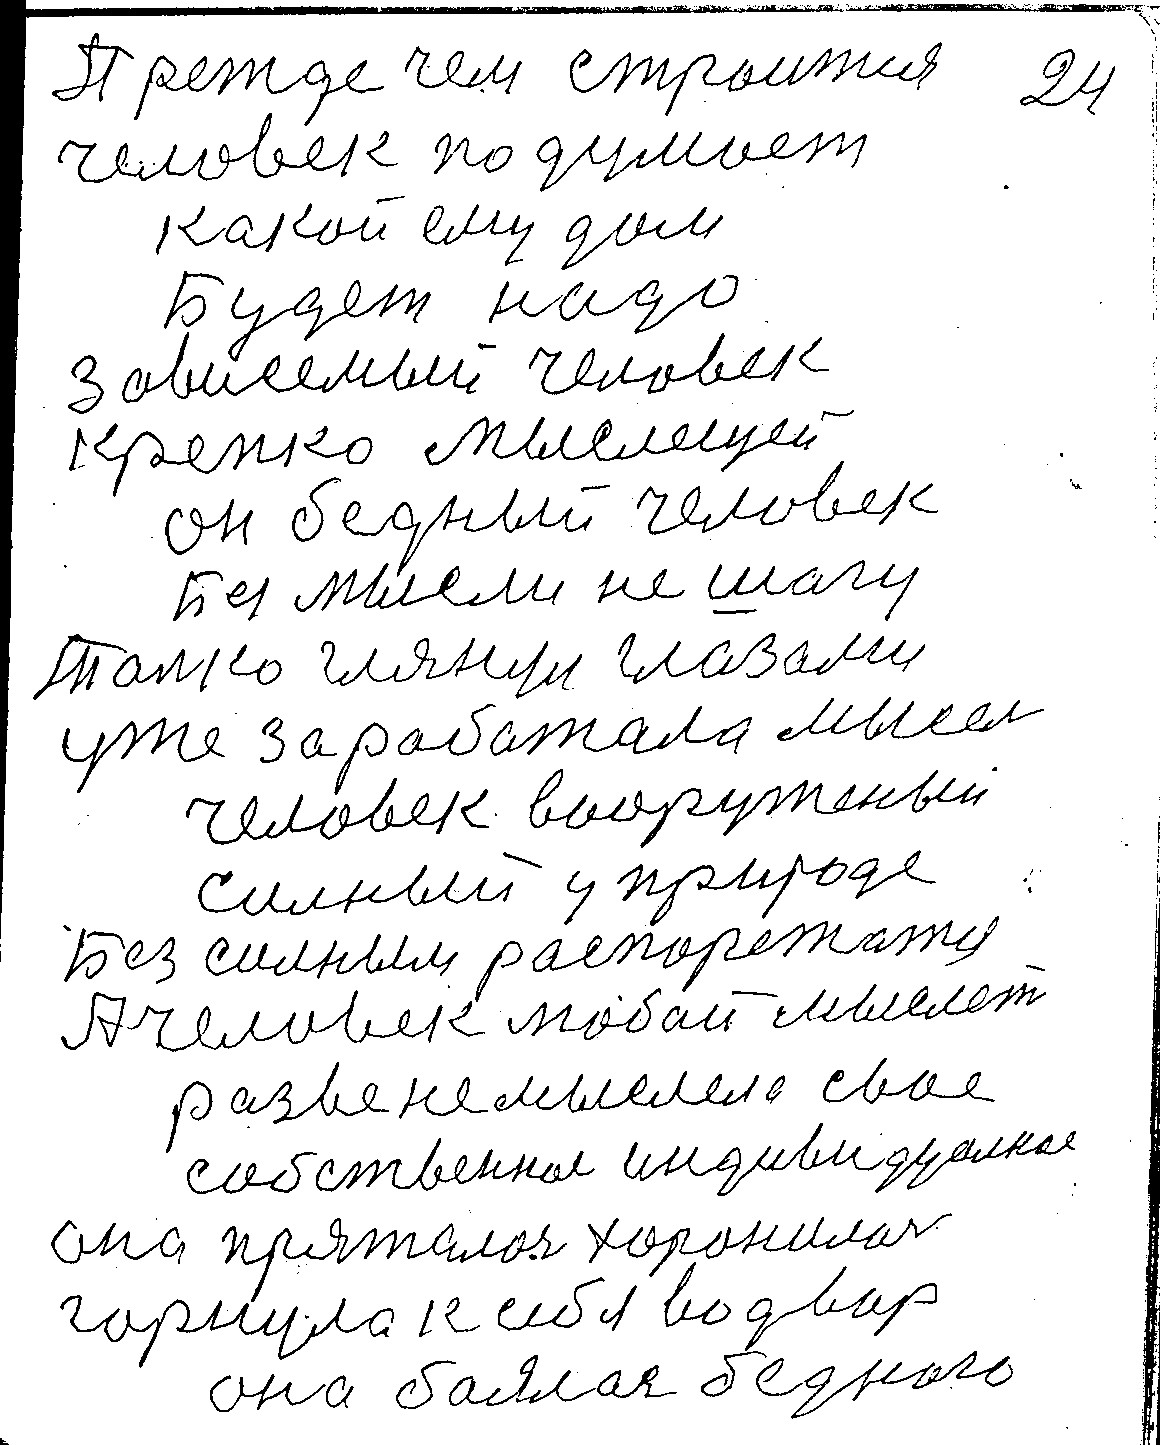 Прежде чем строится 24
человек подумает
какой ему дом
Будет надо
Зависемый человек
крепко мыслещей
он бедный человек
Без мысли не шагу
Толко глянул глазами
уже заработала мысел
человек вооруженый
силный у природе
Без силным распорежатся
А человек любой мыслет
разве не мыслела свое
собственное индивидуалное
она пряталоя хоронилоя
горнула к себя во двор
она боялоя бедного